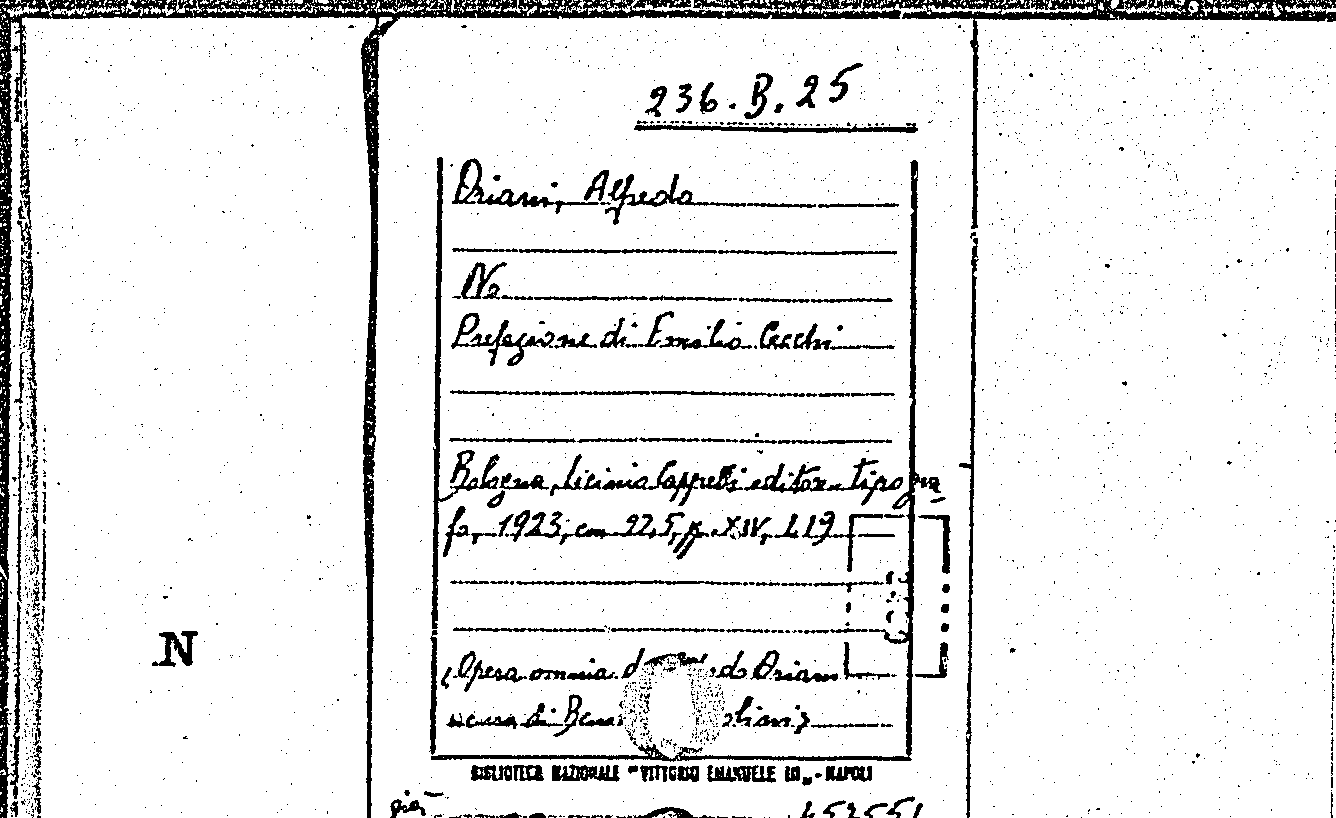 236.B.25
Oriani, Alfredo
No
Prefazione di Emilio Cecchi
Bologna, Licinio Cappelli editore tipogra
fo, 1923, cm 22,5, pp. XIV, 419
(Opera omnia di Alfredo Oriani
a cura di Benito Mussolini)
N
BIBLIOTECA NAZIONALE "VITTORIO EMANUELE III" - NAPOLI
già